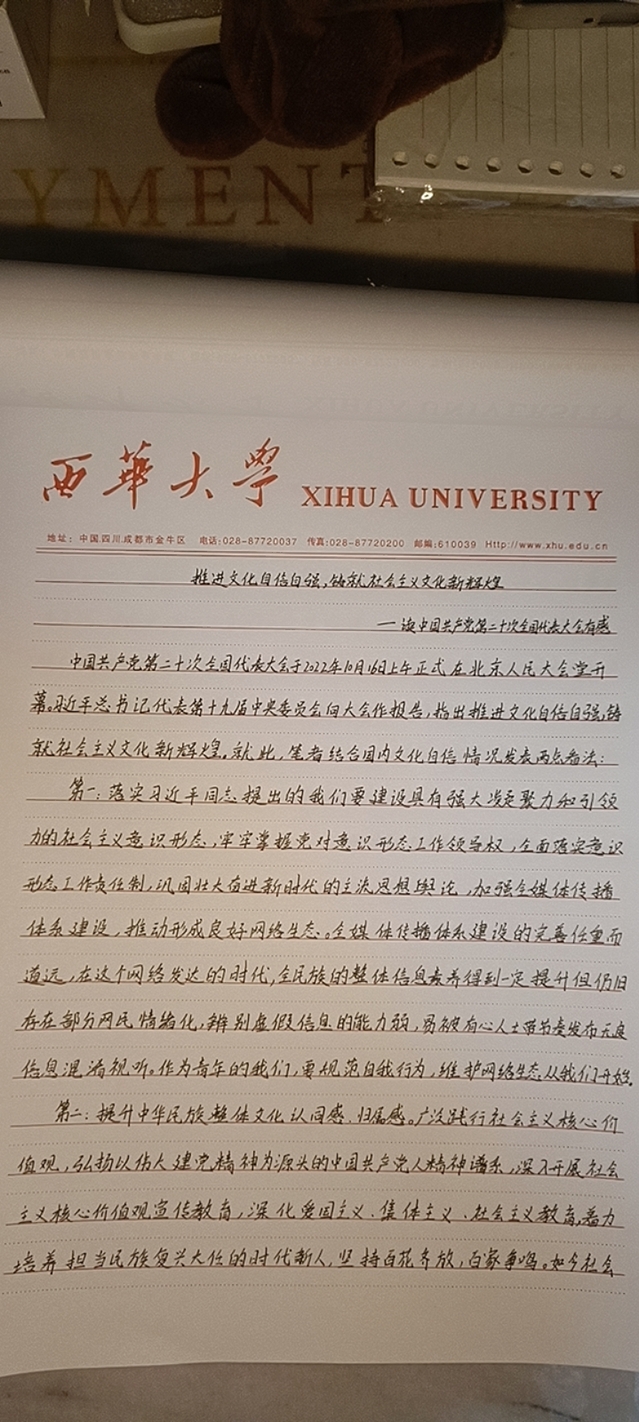 YMENT
西華大學 XIHUA UNIVERSITY
地址：中国.四川.成都市金牛区 电话:028-87720037 传真:028-87720200 邮编:610039 Http://www.xhu.edu.cn
推进文化自信自强,铸就社会主义文化新辉煌
—读中国共产党第二十次全国代表大会有感
中国共产党第二十次全国代表大会于2022年10月16日上午正式在北京人民大会堂开
幕。习近平总书记代表第十九届中央委员会向大会作报告,指出推进文化自信自强,铸
就社会主义文化新辉煌。就此,笔者结合国内文化自信情况发表两点看法:
第一:落实习近平同志提出的我们要建设具有强大凝聚力和引领
力的社会主义意识形态,牢牢掌握党对意识形态工作领导权,全面落实意识
形态工作责任制,巩固壮大奋进新时代的主流思想舆论,加强全媒体传播
体系建设,推动形成良好网络生态。全媒体传播体系建设的完善任重而
道远,在这个网络发达的时代,全民族的整体信息素养得到一定提升但仍旧
存在部分网民情绪化,辨别虚假信息的能力弱,易被有心人士带节奏发布无良
信息混淆视听。作为青年的我们,要规范自我行为,维护网络生态从我们开始。
第二:提升中华民族整体文化认同感、归属感。广泛践行社会主义核心价
值观,弘扬以伟大建党精神为源头的中国共产党人精神谱系,深入开展社会
主义核心价值观宣传教育,深化爱国主义、集体主义、社会主义教育,着力
培养担当民族复兴大任的时代新人,坚持百花齐放,百家争鸣。如今社会